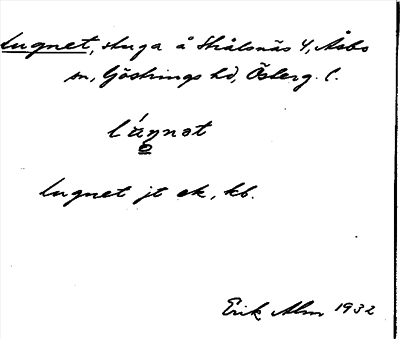 Lugnet, stuga å Skålsnäs 4, Åsbo
sn, Göstrings hd, Österg. l.
lúŋnət
Lugnet jt ek, kb.
Erik Alm 1932